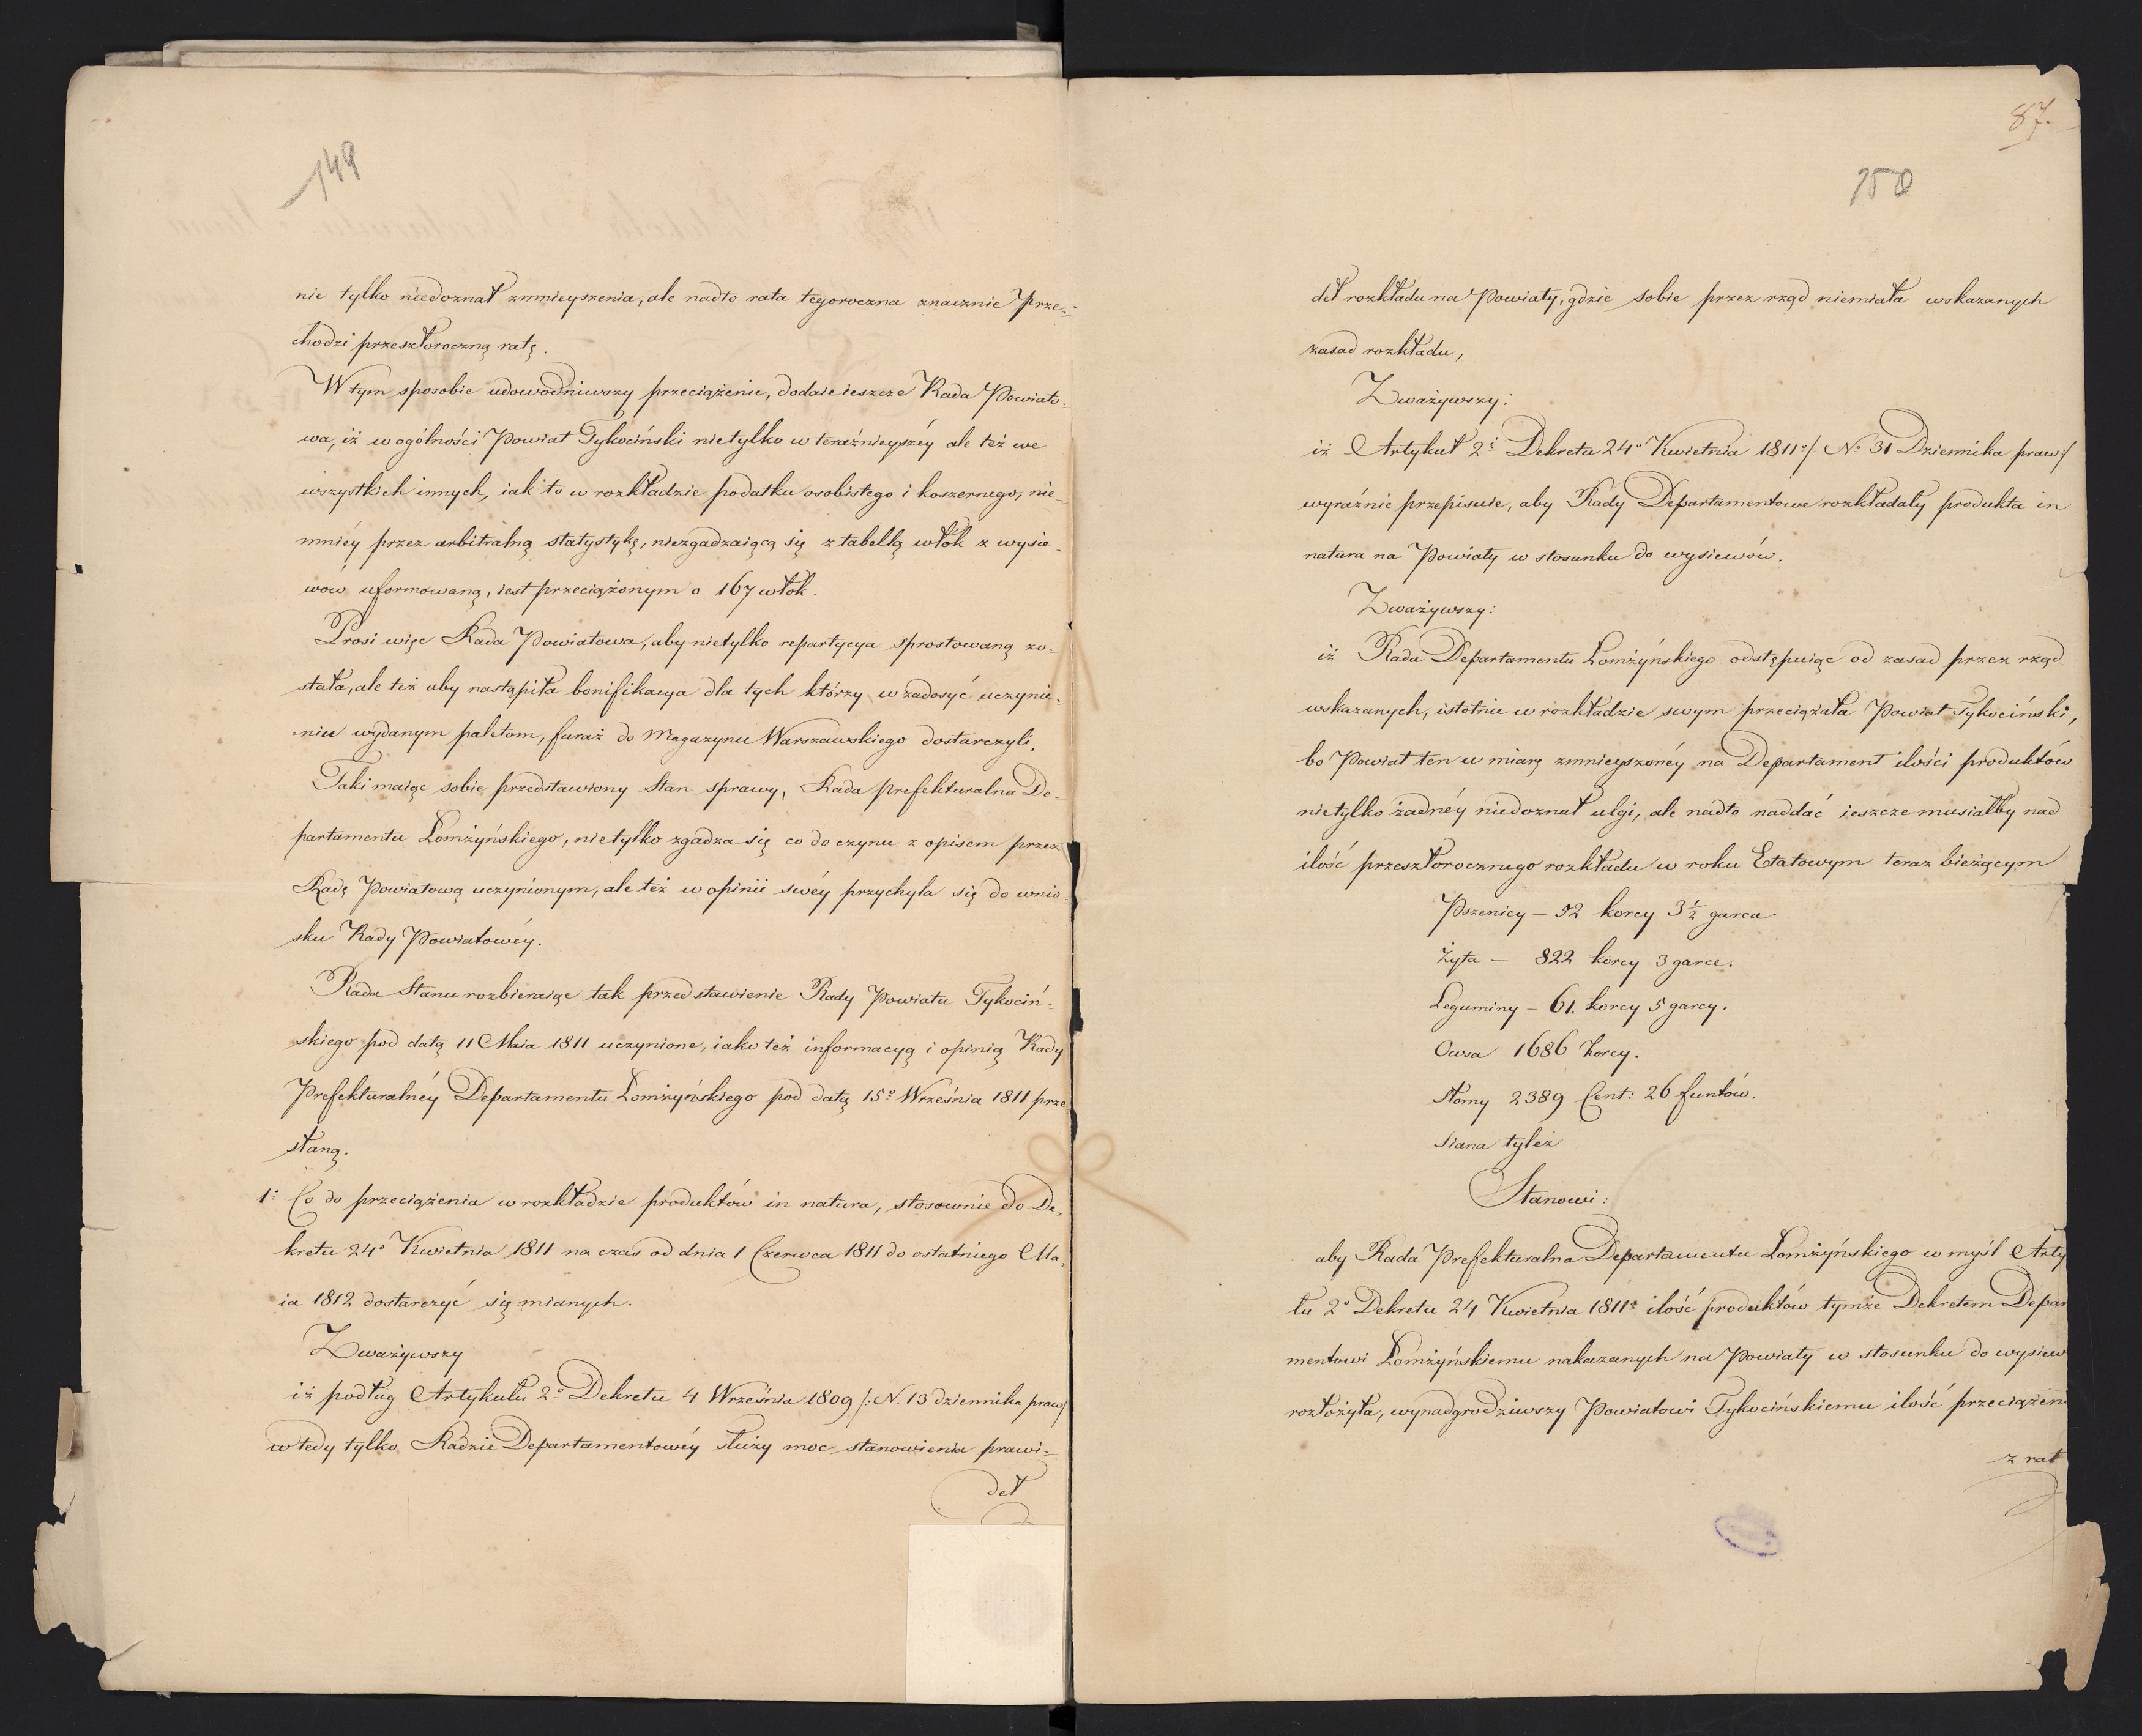 149
nie tylko niedoznał zmnieyszenia, ale nadto rata tegoroczna znacznie prze-
chodzi przeszłoroczną ratę.
W tym sposobie udowodniwszy przeciążenie, dodaie ieszcze Rada Powiato-
wa, iż w ogólności Powiat Tykociński nietylko w teraźnieyszéy ale też we
wszystkich innych, iak to w rozkładzie podatku osobistego i koszernego, nie-
mniéy przez arbitralną statystykę, niezgadzaiącą się z tabellą włók z wysie-
wów uformowaną, iest przeciążonym o 167 włok.
Prosi więc Rada Powiatowa, aby nietylko repartycya sprostowaną zo-
stała, ale też aby nastąpiła bonifikacya dla tych którzy w zadosyć uczynie-
niu wydanym paletom, furaż do Magazynu Warszawskiego dostarczyli.
Taki maiąc sobie przedstawiony Stan sprawy, Rada prefekturalna De-
partamentu Łomżyńskiego, nietylko zgadza się co do czynu z opisem przez
Radę Powiatową uczynionym, ale też w opinii swéy przychyla się do wnio-
sku Rady Powiatowéy.
Rada Stanu rozbieraiąc tak przedstawienie Rady Powiatu Tykociń-
skiego pod datą 11 Maia 1811 uczynione, iako też informacyą i opinią Rady
Prefekturalnéy Departamentu Łomżyńskiego pod datą 15º Września 1811 prze-
słaną.
1º Co do przeciążenia w rozkładzie produktów in natura, stosownie do De-
kretu 24º Kwietnia 1811 na czas od dnia 1 Czerwca 1811 do ostatniego Ma-
ia 1812 dostarczyć się mianych.
Zważywszy
iż podług Artykułu 2º Dekretu 4 Września 1809 /: N. 13 dziennika praw/
wtedy tylko Radzie Departamentowéy służy moc stanowienia prawi-
deł
87.
150
deł rozkładu na Powiaty, gdzie sobie przez rząd niemiała wskazanych
zasad rozkładu,
Zważywszy:
iż Artykuł 2i Dekretu 24º Kwietnia 1811º/ Nº 31 Dziennika praw:/
wyraźnie przepisuie, aby Rady Departamentowe rozkładały produkta in
natura na Powiaty w stosunku do wysiewów.
Zważywszy:
iż Rada Departamentu Łomżyńskiego odstępuiąc od zasad przez rząd
wskazanych, istotnie w rozkładzie swym przeciążała Powiat Tykociński,
bo Powiat ten w miarę zmnieyszonéy na Departament ilości produktów
nietylko żadnéy niedoznał ulgi, ale nadto naddać ieszcze musiałby nad
ilość przeszłorocznego rozkładu w roku Etatowym teraz bieżącym
Pszenicy – 52 korcy 3½ garca.
Żyta – 822 korcy 3 garce.
Leguminy – 61. korcy 5 garcy.
Owsa 1686 korcy.
Słomy 2389 Cent: 26 funtów.
Siana tyleż
Stanowi:
aby Rada Prefekturalna Departamentu Łomżyńskiego w myśl Arty
łu 2º Dekretu 24 Kwietnia 1811º ilość produktów tymże Dekretem Depar
mentowi Łomżyńskiemu nakazanych na Powiaty w stosunku do wysiew
rozłożyła, wynadgrodziwszy Powiatowi Tykocińskiemu ilość przeciążen
z rat